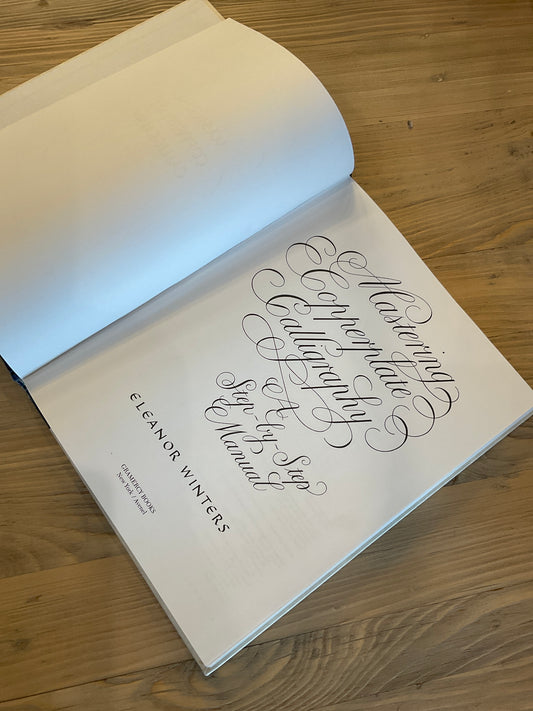 Mastering
Copperplate
Calligraphy
A
Step-by-Step
Manual
ELEANOR WINTERS
GRAMERCY BOOKS
New York / Avenel